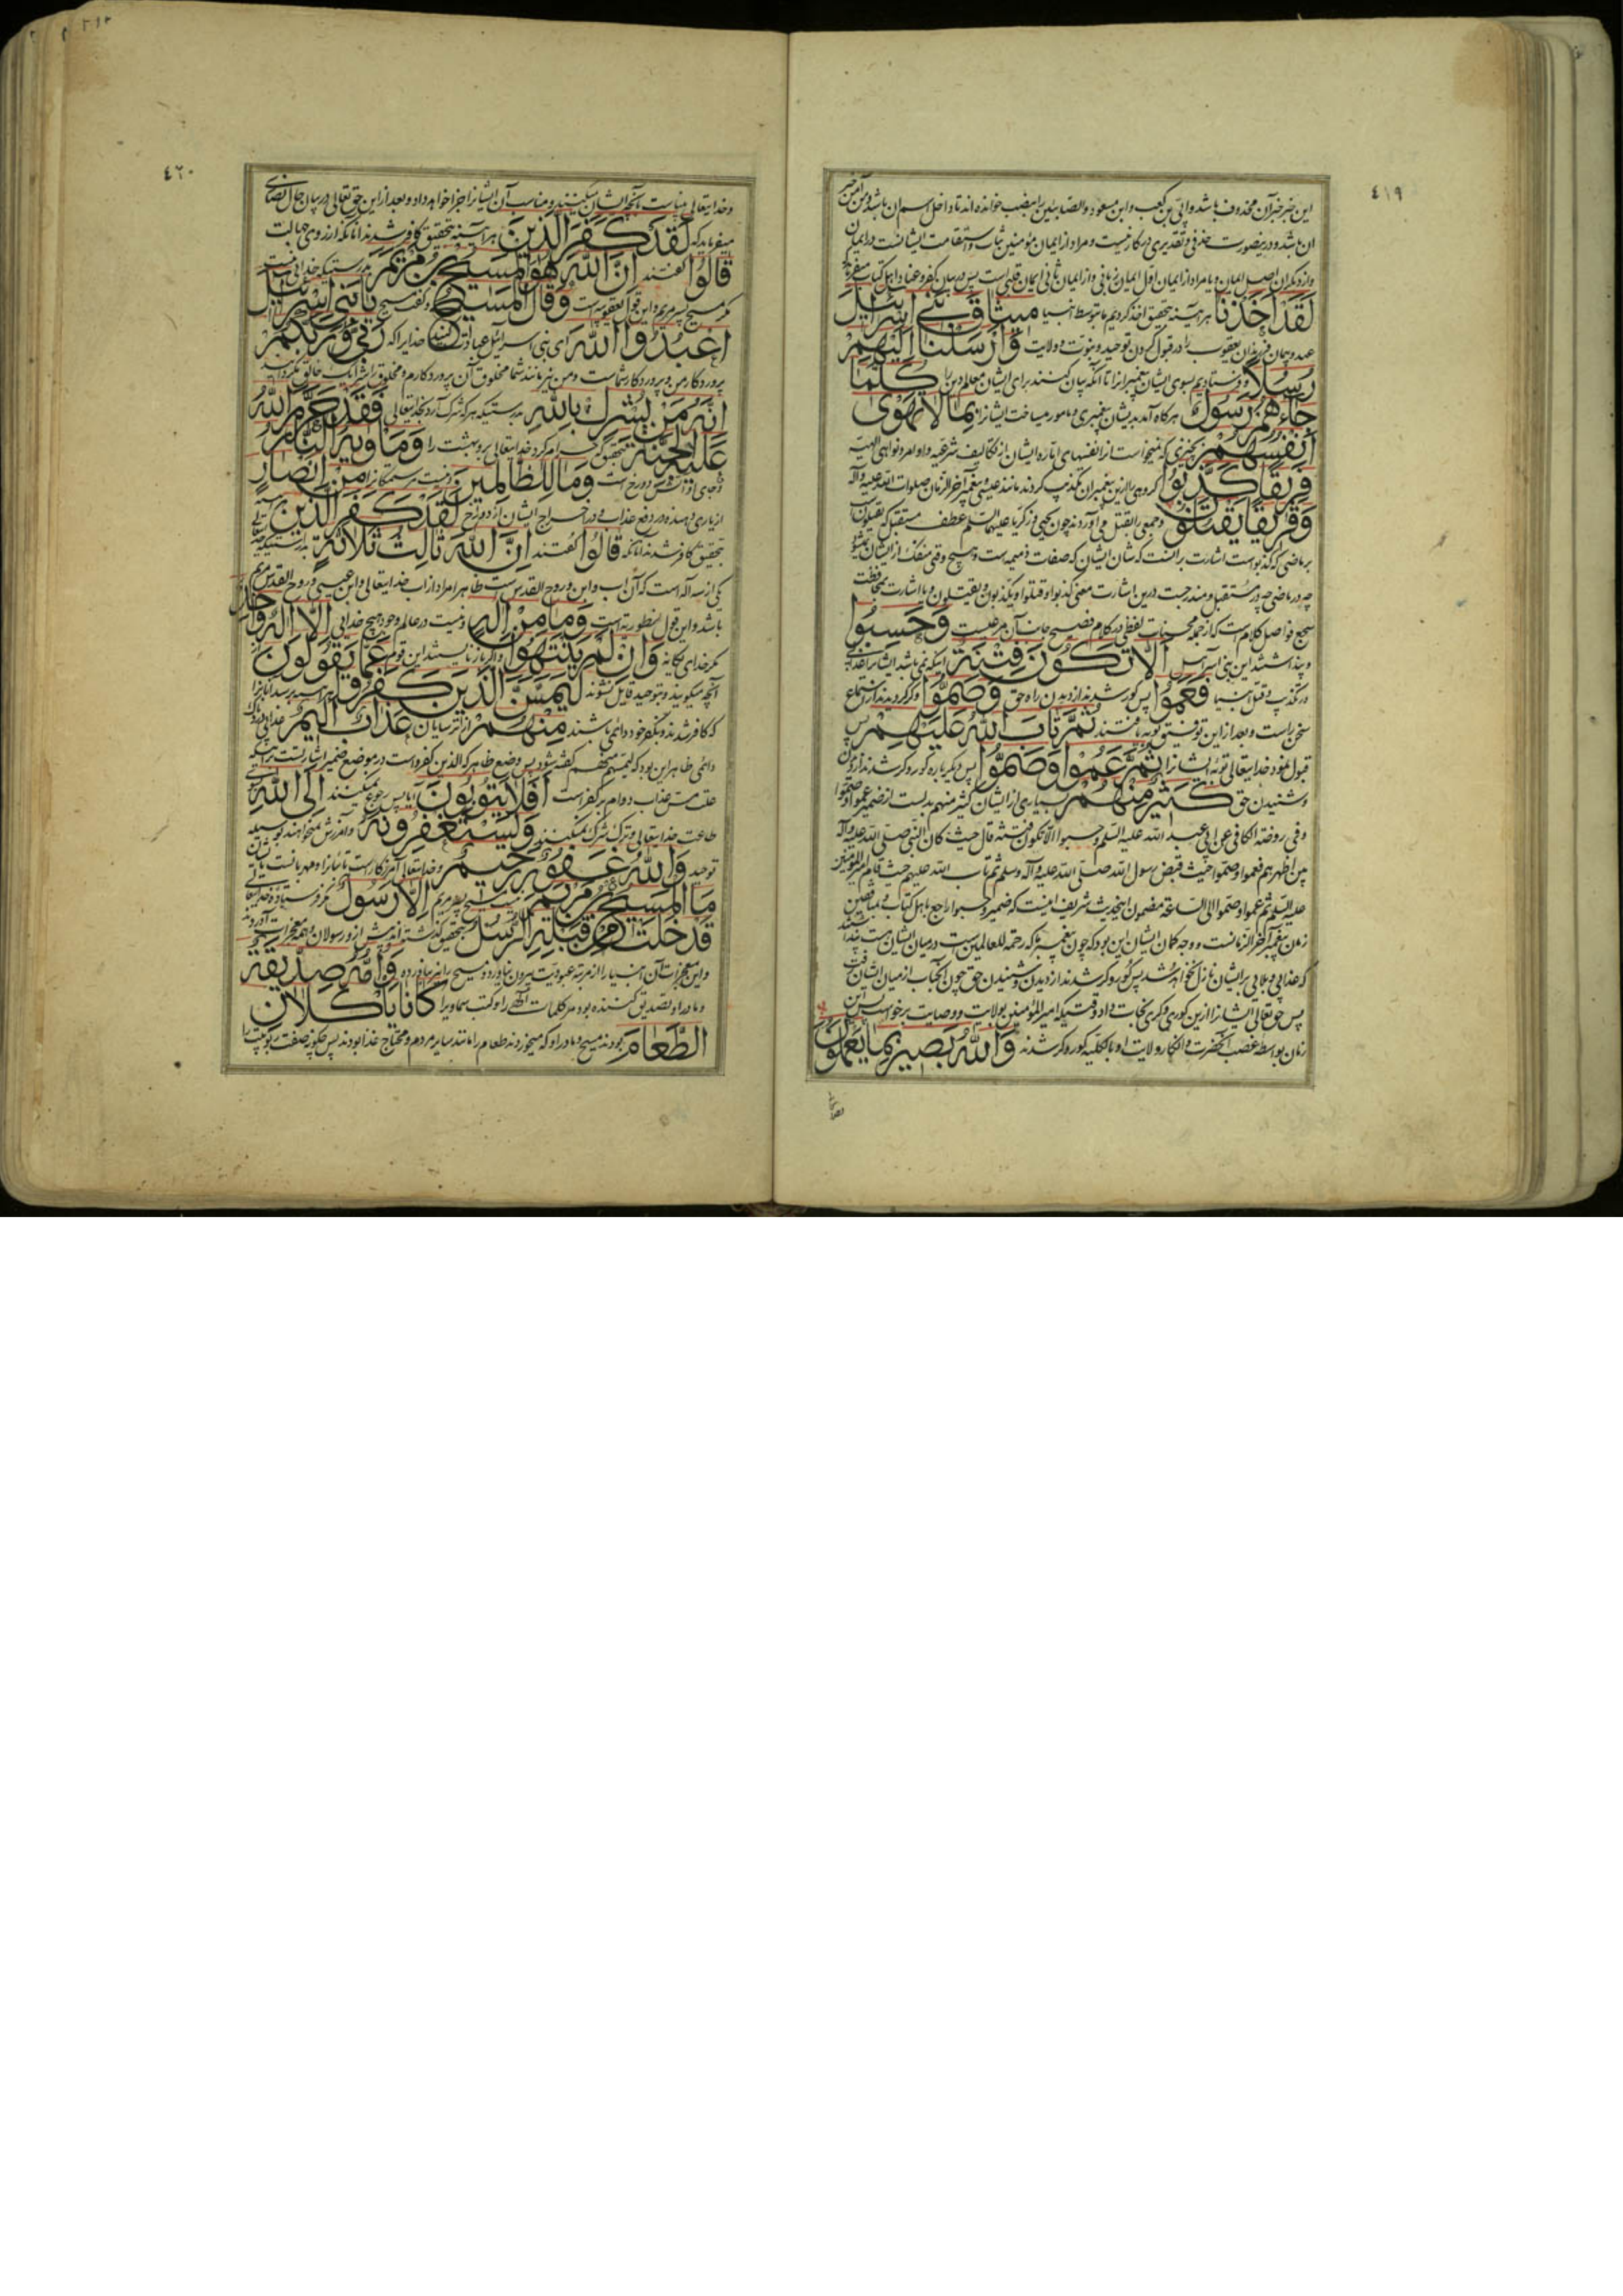 ٤١٩
این خبر خبر آن محذوف باشد و ابی بن کعب و ابن مسعود والصابئین را بنصب خوانده‌اند تا داخل اسم ان باشد و من آمن خبر
ان باشد و درینصورت حذفی و تقدیری در کار نیست و مراد از ایمان مؤمنین ثبات و استقامت ایشانست در ایمان
و از دیگران اصل ایمان و یا مراد از ایمان اول ایمان زبانی و از ایمان ثانی ایمان قلبی است پس در بیان کفر و عناد اهل کتاب میفرماید
لَقَدْ اَخَذْنا هر آینه بتحقیق اخذ کردیم ما بتوسط انبیا میثاقَ بَنی اِسْرائیلَ
عهد و پیمان فرزندان یعقوب را در قبول کردن توحید و نبوت و ولایت وَاَرْسَلْنا اِلَیْهِمْ
رُسُلاً و فرستادیم بسوی ایشان پیغمبرانرا تا آنکه بیان کنند برای ایشان معالم دین را کُلَّما
جاءَهُمْ رَسُولٌ هر گاه آمد بدیشان پیغمبری و مامور میساخت ایشانرا بِما لا تَهْوی
اَنْفُسُهُمْ بچیزی که نمیخواست آنرا نفسهای اماره ایشان از تکالیف شرعیه و اوامر و نواهی الهیه
فَریقًا کَذَّبُوا گروهی را ازین پیغمبران تکذیب کردند مانند عیسی و پیغمبر آخر الزمان صلوات الله علیه و آله
وَفَریقًا یَقْتُلُونَ و جمعی را بقتل می‌آوردند چون یحیی و زکریا علیهما السلم عطف مستقبل که یقتلون است
بر ماضی که کذبوا است اشارت بر آنست که شان ایشان که صفات ذمیمه است و هیچ وقتی منفک از ایشان نمیشود
چه در ماضی چه در مستقبل و مندرجست درین اشارت معنی کذبوا و قتلوا و یکذبون و یقتلون و یا اشارت بمحافظت
سجع فواصل کلام است که از جمله محسنات لفظی در کلام فصیح جانب آن مرعیست وَحَسِبُوا
و پنداشتند این بنی اسرآئیل اَلاّ تَکُونَ فِتْنَةٌ اینکه نمی‌باشد ایشانرا عذابی
در تکذیب و قتل انبیا فَعَمُوا پس کور شدند از دیدن راه حق وَصَمُّوا و کر گردیدند از استماع
سخن راست و بعد ازین توفیق توبه یافتند ثُمَّ تابَ اللهُ عَلَیْهِمْ پس
قبول نمود خدایتعالی توبه ایشانرا ثُمَّ عَمُوا وَصَمُّوا پس دیگرباره کور و کر شدند از دیدن
و شنیدن حق کَثیرٌ مِنْهُمْ بسیاری از ایشان کثیر منهم بدلست از ضمیر عموا و صموا
و فی روضة الکافی عن ابی عبد الله علیه السلم و حسبوا الا تکون فتنة قال حیث کان النبی صلی الله علیه و آله
بین اظهرهم فعموا و صموا حیث قبض رسول الله صلی الله علیه و آله و سلم ثم تاب الله علیهم حیث قام امیر المؤمنین
علیه السلم ثم عموا و صموا الی الساعة مضمون این حدیث شریف اینست که ضمیر و حسبوا راجع باهل کتاب و منافقین
زمان پیغمبر آخر الزمانست و وجه کمان ایشان این بود که چون پیغمبر که رحمة للعالمین است در میان ایشان هست
که عذابی و بلایی برایشان نازل نخواهد شد پس کور و کر شدند از دیدن و شنیدن حق چون آنجناب از میان ایشان رفت
پس حق تعالی ایشانرا ازین کوری و کری نجات داد وقتیکه امیر المؤمنین بولایت و وصایت برخواست پس این
زمان بواسطه غصب آنحضرت و انکار ولایت او بالکلیه کور و کر شدند وَاللهُ بَصیرٌ بِما یَعْمَلُونَ
٤٢٠
و خدایتعالی بیناست بآنچه ایشان میکنند و مناسب آن ایشانرا جزا خواهد داد و بعد ازین حق تعالی در بیان حال نصاری
میفرماید که لَقَدْ کَفَرَ الَّذینَ هر آینه بتحقیق کافر شدند آنانکه از روی جهالت
قالُوا گفتند اِنَّ اللهَ هُوَ الْمَسیحُ بْنُ مَرْیَمَ بدرستیکه خدایی نیست
مگر مسیح پسر مریم و این قول یعقوبیه است وَقالَ الْمَسیحُ و گفت مسیح یا بَنی اِسْرائیلَ
اعْبُدُوا اللهَ ای بنی اسرائیل عبادت کنید خدایرا که رَبّی وَرَبَّکُمْ
پروردگار من و پروردگار شماست و من نیز مانند شما مخلوق آن پروردگارم و مخلوق را شریک خالق نگردانید
اِنَّهُ مَنْ یُشْرِكْ بِاللهِ بدرستیکه هر که شرک آرد بخدایتعالی فَقَدْ حَرَّمَ اللهُ
عَلَیْهِ الْجَنَّةَ پس بتحقیق که حرام کرد خدایتعالی برو بهشت را وَمَأْویهُ النّارُ
و جای او آتش دوزخ است وَما لِلظّالِمینَ و نیست ستمکارانرا مِنْ اَنْصارٍ
از یاری دهنده در دفع عذاب و در اخراج ایشان از دوزخ لَقَدْ کَفَرَ الَّذینَ
بتحقیق کافر شدند آنانکه قالُوا گفتند اِنَّ اللهَ ثالِثُ ثَلاثَةٍ بدرستیکه خدایتعالی
یکی از سه اله است که آن اب و ابن و روح القدس است ظاهرا مراد از اب خدایتعالی و ابن عیسی و روح القدس مریم
باشد و این قول نسطوریه است وَما مِنْ اِلهٍ و نیست در عالم وجود هیچ خدایی اِلاّ اِلهٌ واحِدٌ
مگر خدای یگانه وَاِنْ لَمْ یَنْتَهُوا و اگر باز نایستند این قوم عَمّا یَقُولُونَ
از آنچه میگویند و بتوحید قایل نشوند لَیَمَسَّنَّ الَّذینَ کَفَرُوا هر آینه برسد آنانرا
که کافر شدند و بکفر خود دائمی باشند مِنْهُمْ از ترسایان عَذابٌ اَلیمٌ عذابی دردناک
دائمی ظاهر این بود که لیمسنهم گفته شود پس وضع ظاهر که الذین کفروا است در موضع ضمیر اشارتست باینکه
علت مس عذاب دوام بر کفر است اَفَلا یَتُوبُونَ آیا پس رجوع نمیکنند اِلَی اللهِ بسوی
طاعت خدایتعالی و ترک شرک نمیکنند وَیَسْتَغْفِرُونَهُ و آمرزش نمیخواهند بوسیله
توحید وَاللهُ غَفُورٌ رَحیمٌ و خدایتعالی آمرزگار است تائبانرا و مهربانست بایشان
مَا الْمَسیحُ بْنُ مَرْیَمَ نیست مسیح پسر مریم اِلاّ رَسُولٌ مگر فرستاده خدایتعالی
قَدْ خَلَتْ مِنْ قَبْلِهِ الرُّسُلُ بتحقیق که گذشته‌اند پیش ازو رسولان و همه معجزات آوردند
و این معجزات آن انبیا را از مرتبه عبودیت بیرون نیاورد و مسیح را نیز نیاورده وَاُمُّهُ صِدّیقَةٌ
و مادر او تصدیق کننده بود مر کلمات الهی را و کتب سماویرا کانا یَأْکُلانِ
الطَّعامَ بودند مسیح و مادر او که میخوردند طعام را مانند سایر مردم و محتاج غذا بودند پس چگونه صفت ربوبیت را